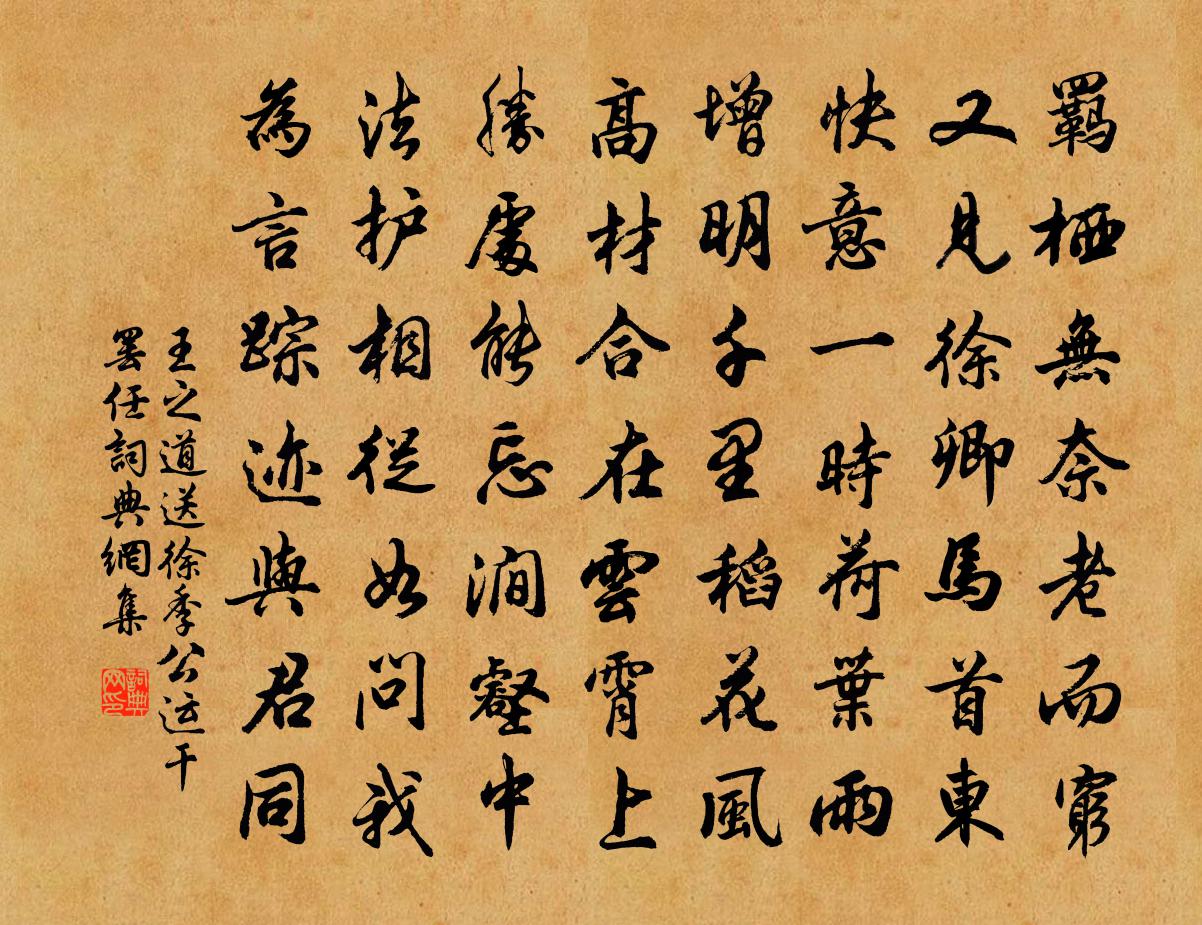 羁栖無奈老而窮
又見徐卿馬首東
快意一時荷葉雨
增明千里稻花風
高材合在雲霄上
勝處能忘澗壑中
法护相從如問我
為言踪迹與君同
王之道送徐季公运干
罢任詞典網集
詞典网印